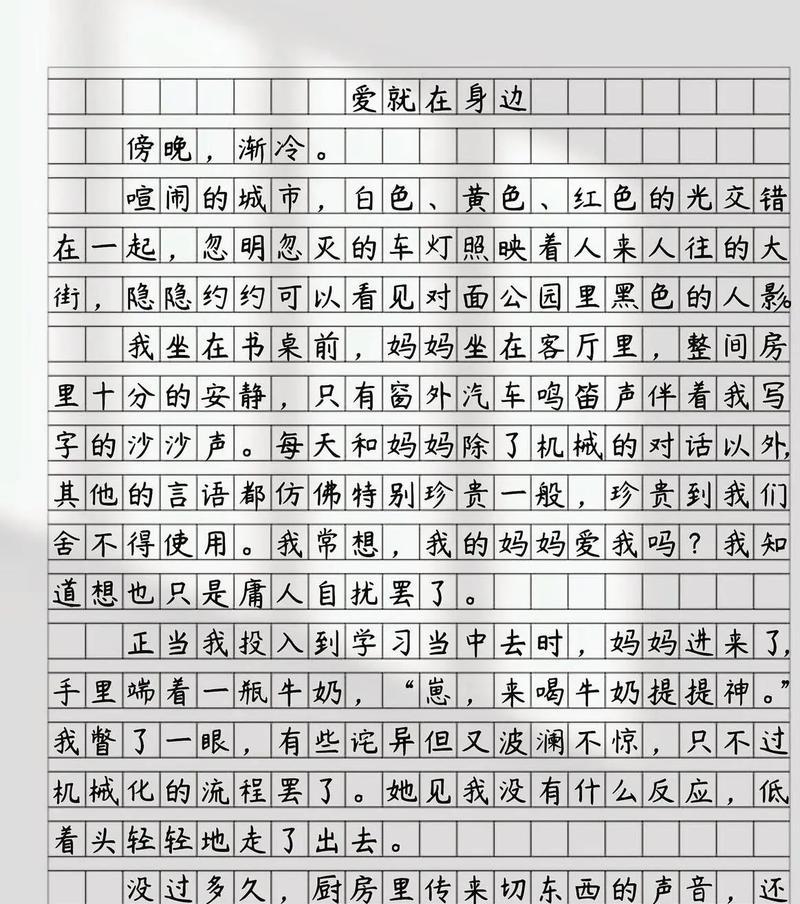 爱就在身边
傍晚，渐冷。
喧闹的城市，白色、黄色、红色的光交错
在一起，忽明忽灭的车灯照映着人来人往的大
街，隐隐约约可以看见对面公园里黑色的人影。
我坐在书桌前，妈妈坐在客厅里，整间房
里十分的安静，只有窗外汽车鸣笛声伴着我写
字的沙沙声。每天和妈妈除了机械的对话以外，
其他的言语都仿佛特别珍贵一般，珍贵到我们
舍不得使用。我常想，我的妈妈爱我吗？我知
道想也只是庸人自扰罢了。
正当我投入到学习当中去时，妈妈进来了，
手里端着一瓶牛奶，“崽，来喝牛奶提提神。”
我瞥了一眼，有些诧异但又波澜不惊，只不过
机械化的流程罢了。她见我没有什么反应，低
着头轻轻地走了出去。
没过多久，厨房里传来切东西的声音，还